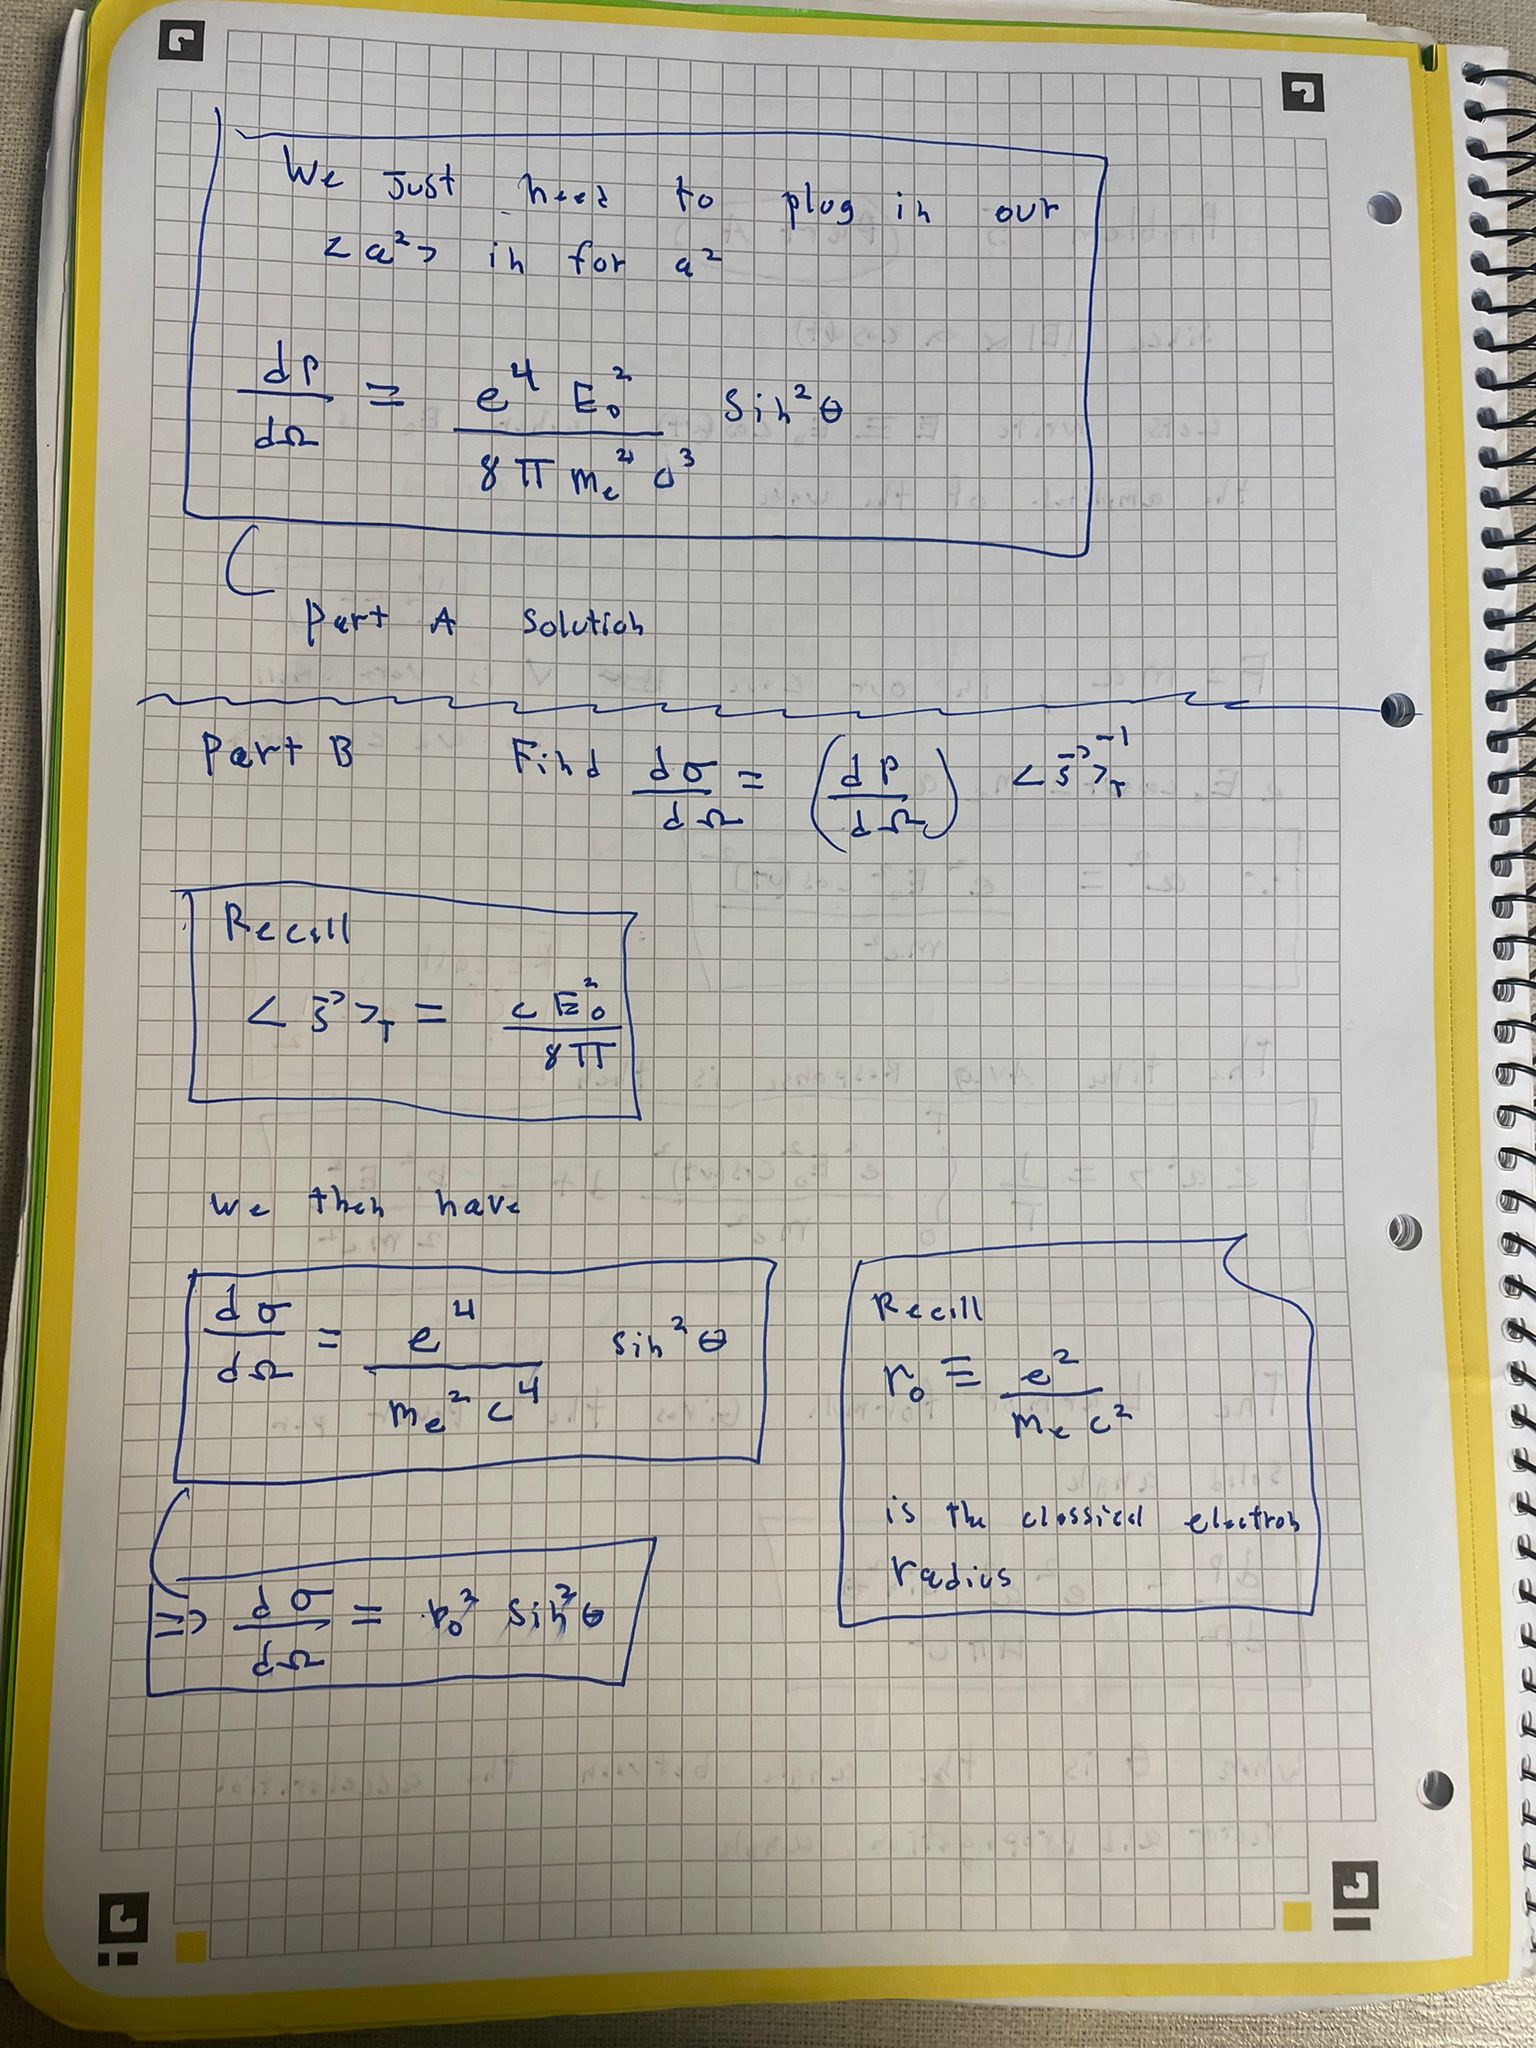 We Just need to plug in our
<a²> in for a²
dP/dΩ = e⁴ E₀² / 8π mₑ² c³ sin²θ
Part A solution
Part B Find dσ/dΩ = (dP/dΩ) <S⃗>_T⁻¹
Recall
<S⃗>_T = c E₀² / 8π
we then have
dσ/dΩ = e⁴ / mₑ² c⁴ sin²θ
Recall
r₀ ≡ e² / mₑ c²
is the classical electron
radius
=> dσ/dΩ = r₀² sin²θ